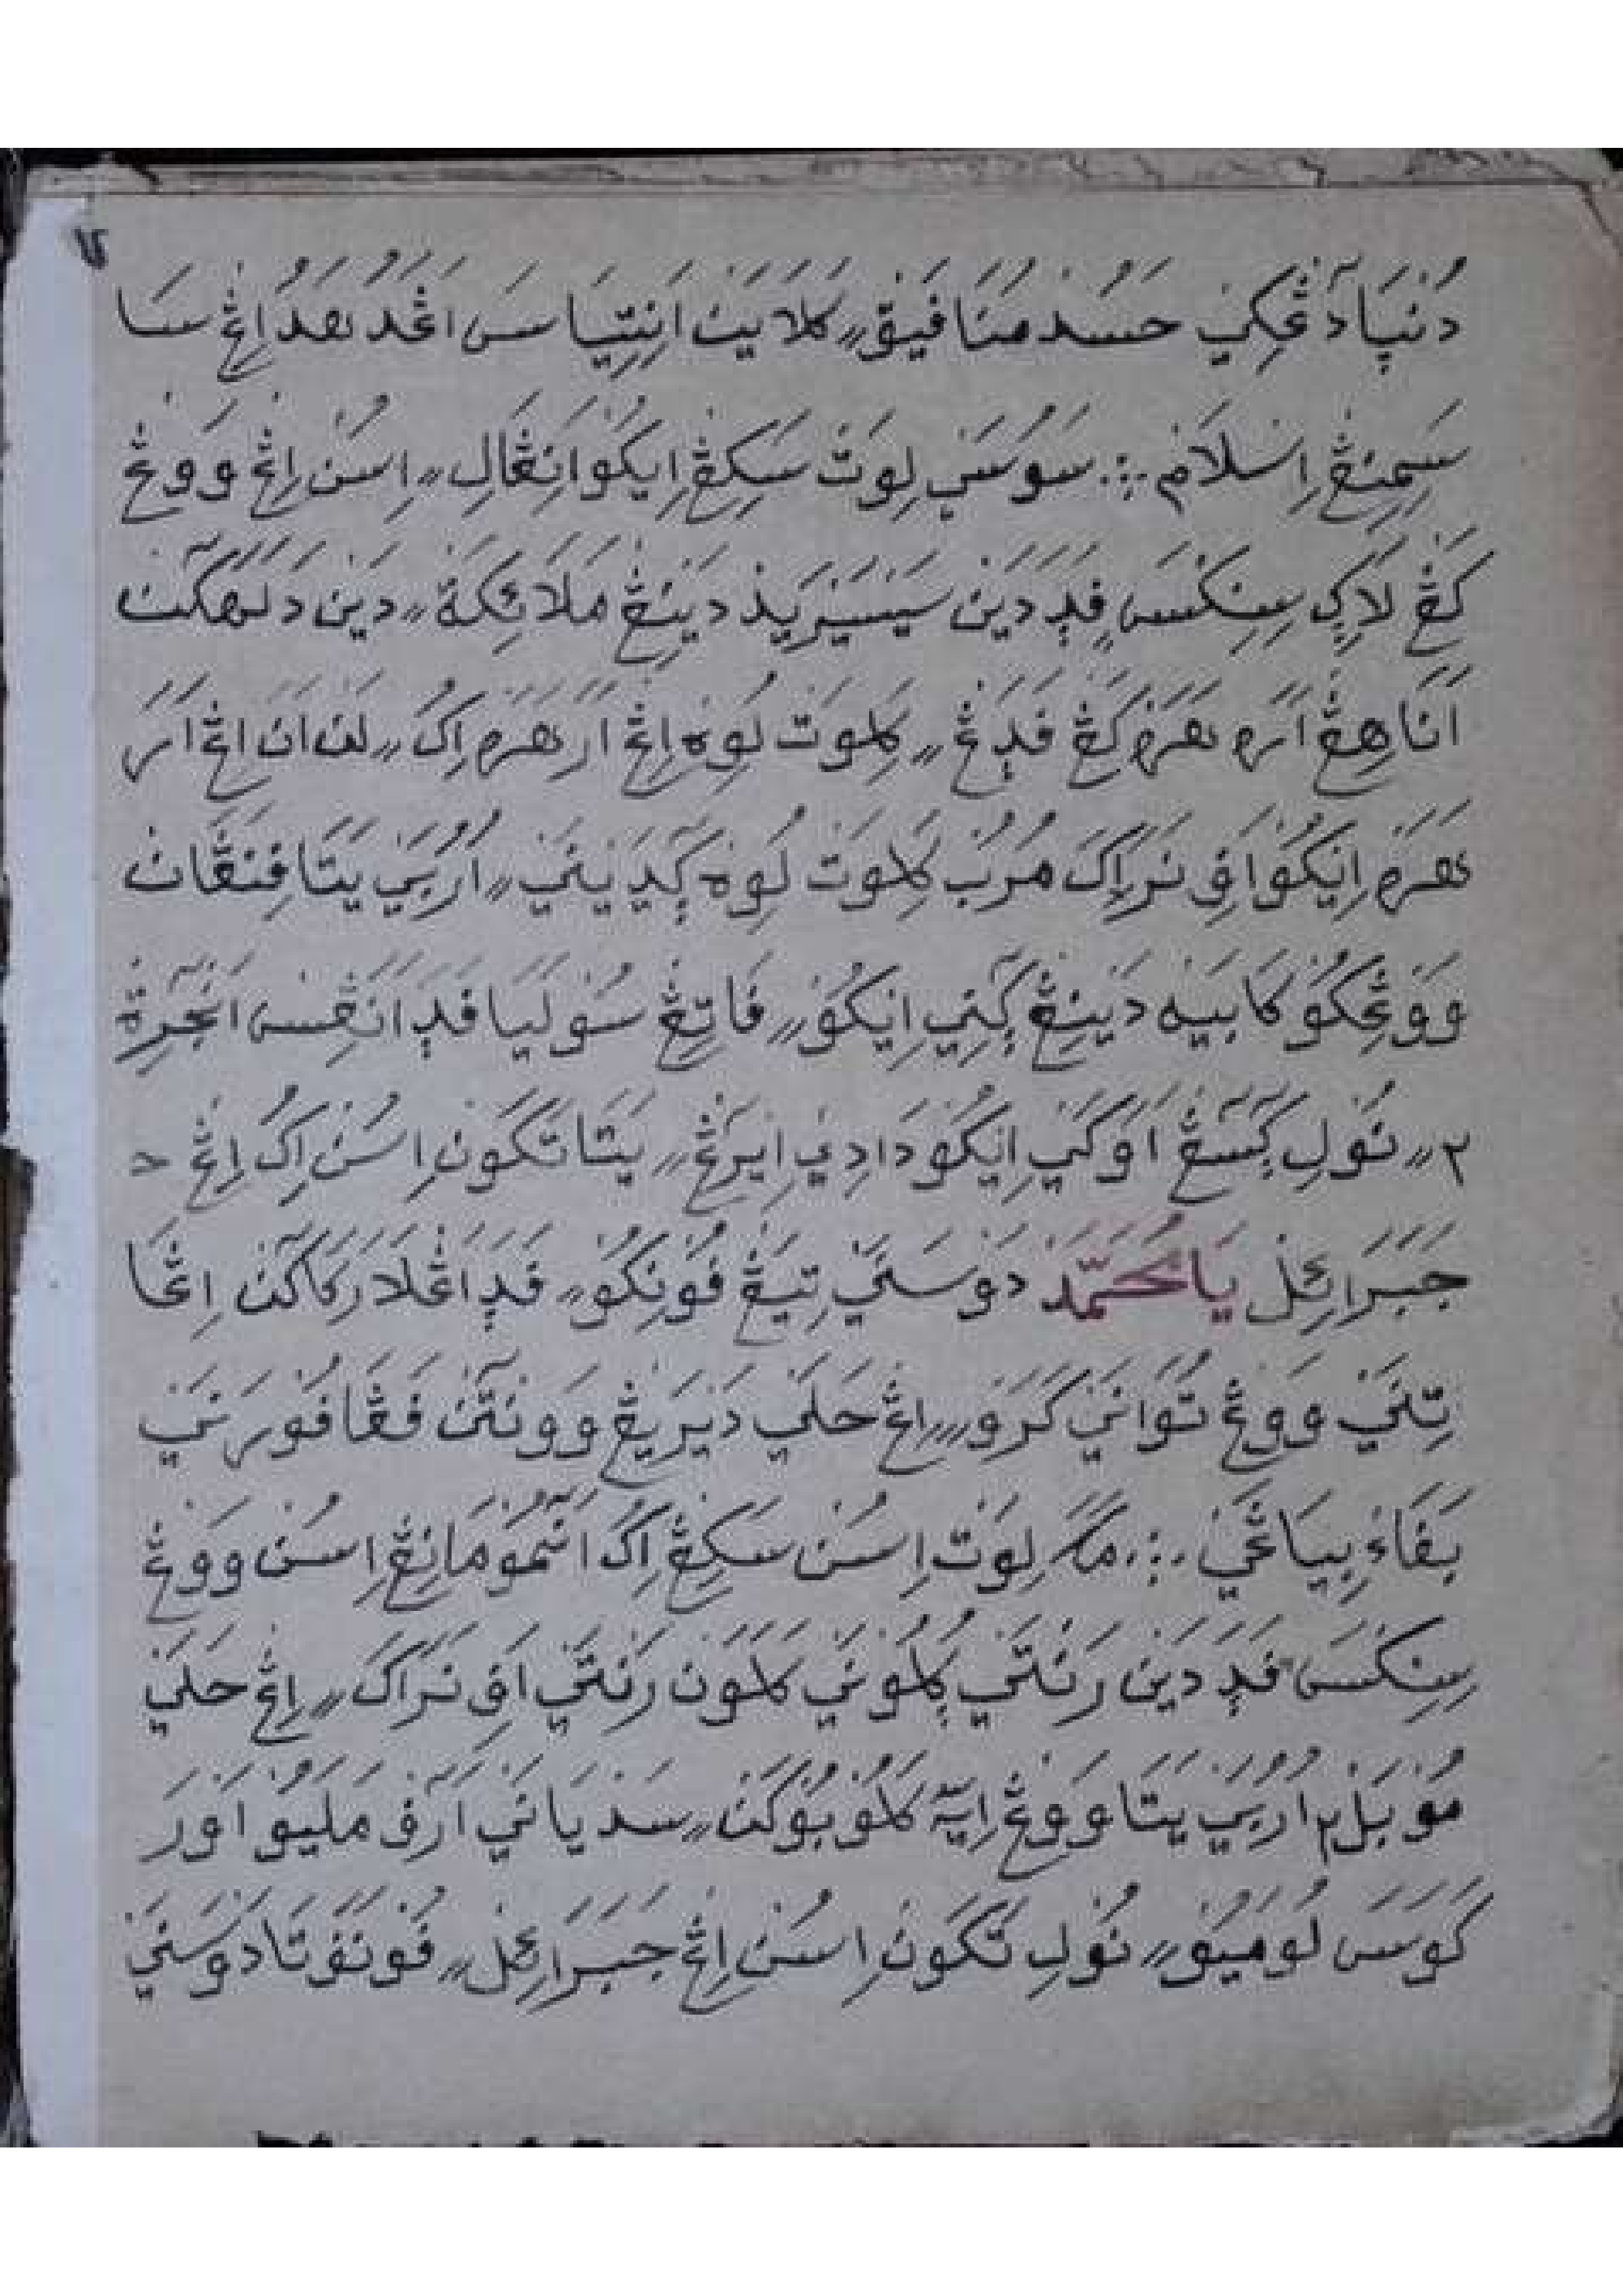 دُنْيَا دَڠْكِيْ حَسُدْ مُنَافَيِقْ ،، كَلَايَنْ اَنِتِيَاسَ اَڠَدُ هَدُ اِڠْ سَسَا
سَمِڠْ اِسْلَامْ ... سَوُسَيْ لِوَتْ سَكِڠْ اِيكُوْ اَنِڠَالِ ،، اِسُنْ اِڠْ وَوڠْ
كَڠْ لَاكِ سِنِكْسَ فَدٜ دَيْنْ سَيْسَيْرَيْدْ دَيْنِڠْ مَلَائِكَةْ ،، دَيْنْ دَلَهَكٓنْ
اَنَاهِڠْ اَرَ هَرَهْ كَڠْ فَدَڠْ ،، كَلِوَتْ لُوِهْ اِڠْ اَرَ هَرَهْ اِكُ ،، لَنْ اَنَ اِڠْ اَرَ
هَرَهْ اِيْكُوْ اَفِ نَرَاكَ مُرُبْ كَلِوَتْ لُوِهْ كٓدَيْنَيْ ،، اُرُبَيْ يَتَا فِنَڠَانْ
وَوڠْكُوْ كَابَيْهْ دَيْنِڠْ كٓنِيْ اِيْكُوْ ،، فَاتِڠْ سُوْلَيَا فَدٜ اَنَڠِسْ اَنْجٓرِهْ
٢ ،، نُوْلِ كٓسٓڠْ اَوَكَيْ اِيْكُوْ دَادِيْ اِيْرٓڠْ ،، يَتَا تَكَوْنْ اِسُنْ اِكُ اِڠْ
جَبَرَائِلْ يَا مُحَمَّدْ دَوْسَنَيْ تِيَڠْ فُوْنِكُوْ ،، فَدٜ اَڠْلَارَكَاكٓنْ اِڠْ
تِنَيْ وَوڠْ تُوَانَيْ كَرَوْ ،، اِڠْ حَلَيْ دَيْرَيْڠْ وَوْنْتٓنْ فَڠَافُوْرَنَيْ
بَڤَاءْ بِيْيَاڠَيْ ... مَكَ لِوَتْ اِسُنْ سَكِڠْ اِكُ اَنٓمُوْ مَانِڠْ اِسُنْ وَوڠْ
سِنِكْسَ فَدٜ دَيْنْ رَنْتَيْ بٜلُوْنِيْ كَلَوَنْ رَنْتَيْ اَفِ نَرَاكَ ،، اِڠْ حَلَيْ
مُوْبَلْ٢ اُرُبَيْ يَتَا وَوڠْ اِيَهْ كَلُوْبُوْكَنْ ،، سَدْيَانَيْ اَرٓفْ مَلَيُوْ اَوْرَ
كَوَسَ لُوْمَيُوْ ،، نُوْلِ تَكَوْنْ اِسُنْ اِڠْ جَبَرَائِلْ ،، فُوْنَفَوْتَا دَوْسَنَيْ